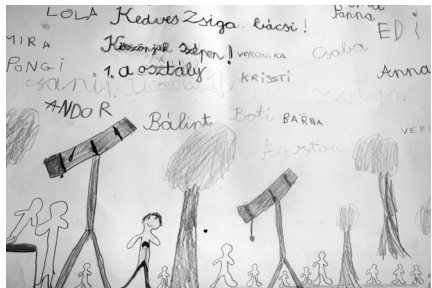 LOLA Kedves Zsiga bácsi!
Panna
EDI
MIRA Köszönjük szépen! VERONIKA Csaba
PONGI 1. a osztály KRISZTI Anna
Zsiga
ANDOR Bálint Boti BARNA
Ágoston